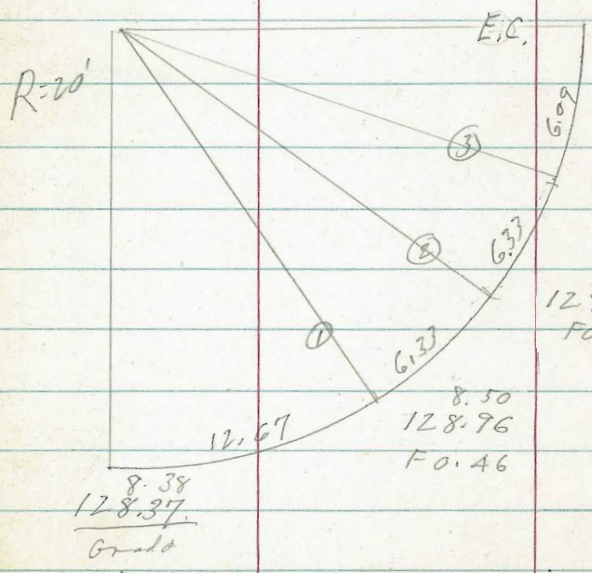 E.C.
R=20'
6.09
③
6.33
②
12
①
6.33
8.50
128.96
F0.46
12.67
8.38
128.37
Grade